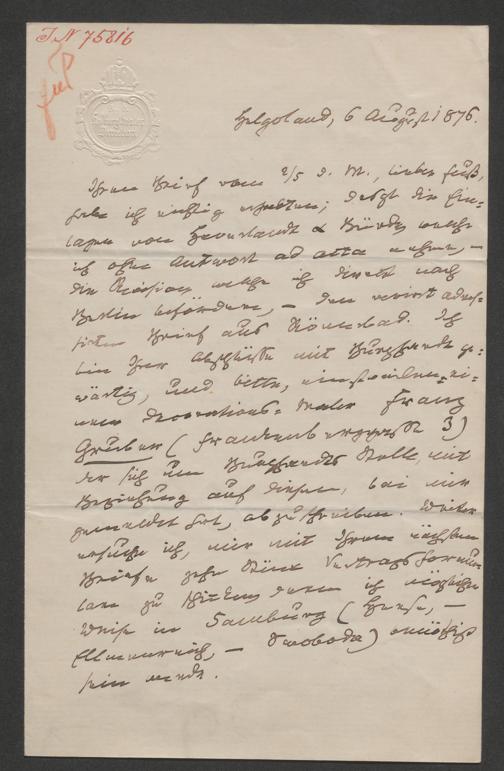 IN 75816
Helgoland, 6 August 1876.
Ihren Brief vom 2/5 d. M., lieber Fuß,
habe ich richtig erhalten; desgl. die Ein-
lagen von Haverlandt & Bürde, welche
ich ohne Antwort ad acta nehme, –
die Quittung welche ich direkt nach
Berlin befördere, – den verirrt adres-
sirten Brief aus Römerbad. Ich
bin Ihrer Abschlüsse mit Burghardt ge-
wärtig, und bitte, einstweilen ei-
nem Decorations-Maler Franz
Gruber (Frankenberggasse 3)
der sich um Burghardts Stelle, mit
Beziehung auf diesen, bei mir
gemeldet hat, abzuschreiben. Weiter
ersuche ich, mir mit Ihrem nächsten
Briefe zehn Stück Vertragsformu-
lare zu schicken, deren ich möglicher
Weise in Hamburg (
Ellmenreich, – Swoboda) benöthigt
sein werde.